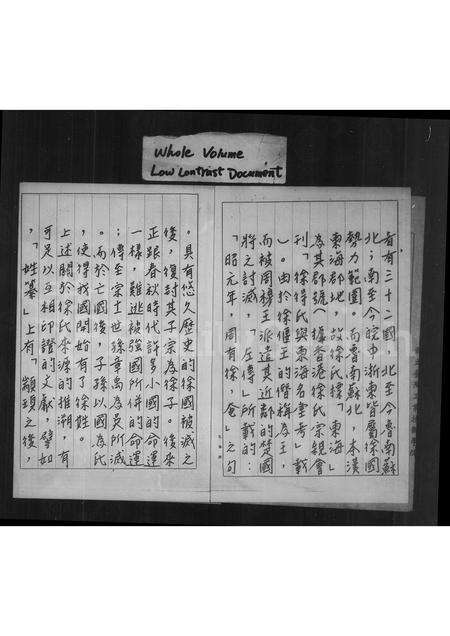 Whole Volume
Low Contrast Document
者有三十二國,北至今魯南蘇
北;南至今皖中浙東皆屬徐國
勢力範圍。而魯南蘇北,本漢
東海郡地,故徐氏得「東海」
為其郡號(據香港徐氏宗親會
刊「徐得氏與東海名堂考」載
)。由於徐偃王的僭稱為王,
而被周穆王派遣其近郡的楚國
將之討滅,「左傳」所載的:
「昭元年,周有徐,奄」之句
。具有悠久歷史的徐國被滅之
後,復封其子宗為徐子。後來
正跟春秋時代許多小國的命運
一樣,難逃被強國所併的命運
;傳至宗十一世孫章禹為吳所滅
。而於亡國後,子孫以國為氏
,使得我國開始有了徐姓。
上述關於徐氏來源的推溯,有
可足以互相印證的文獻,譬如
,「姓纂」上有「顓頊之後,